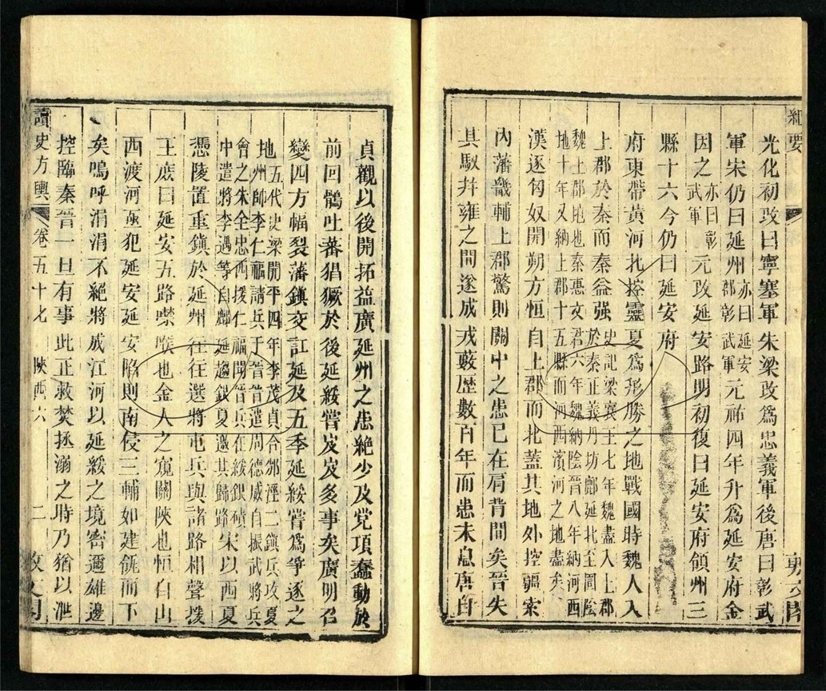 紀要
光化初改曰寧塞軍朱梁改爲忠義軍後唐曰彰武
軍宋仍曰延州亦曰延安郡彰武軍元祐四年升爲延安府金
因之亦曰彰武軍元改延安路明初復曰延安府領州三
縣十六今仍曰延安府
府東帶黃河北控靈夏爲形勝之地戰國時魏人入
上郡於秦而秦益强史記梁襄王七年魏盡入上郡於秦正義丹坊鄜延北至固陰
魏上郡地也秦惠文君六年魏納陰晉八年納河西地十年又納上郡十五縣而河西濱河之地盡矣
漢逐匈奴開朔方恒自上郡而北蓋其地外控疆索
內藩畿輔上郡驚則關中之患已在肩背間矣晉失
其馭幷雍之間遂成戎藪歷數百年而患未息唐自
貞觀以後開拓益廣延州之患絶少及党項蠢動於
前回鶻吐蕃猖獗於後延綏嘗岌岌多事矣廣明召
變四方幅裂藩鎭交訌延及五季延綏嘗爲爭逐之
地五代史梁開平四年李茂貞合邠涇二鎭兵攻夏州師李仁福請兵于晉晉遣周德威自振武將兵
會之朱全忠西援仁福聞晉兵在綏銀磧中遣將李遇等自鄜延趨銀夏邀其歸路宋以西夏
憑陵置重鎭於延州往往選將屯兵與諸路相聲援
王庶曰延安五路喉也金人之窺關陜也恒自山
西渡河亟犯延安延安陷則南侵三輔如建瓴而下
矣嗚呼涓涓不絶將成江河以延綏之境密邇雄邊
控臨秦晉一旦有事此正救焚拯溺之時乃猶以泄
讀史方輿
卷五十七
陜西六
二
敷文閣